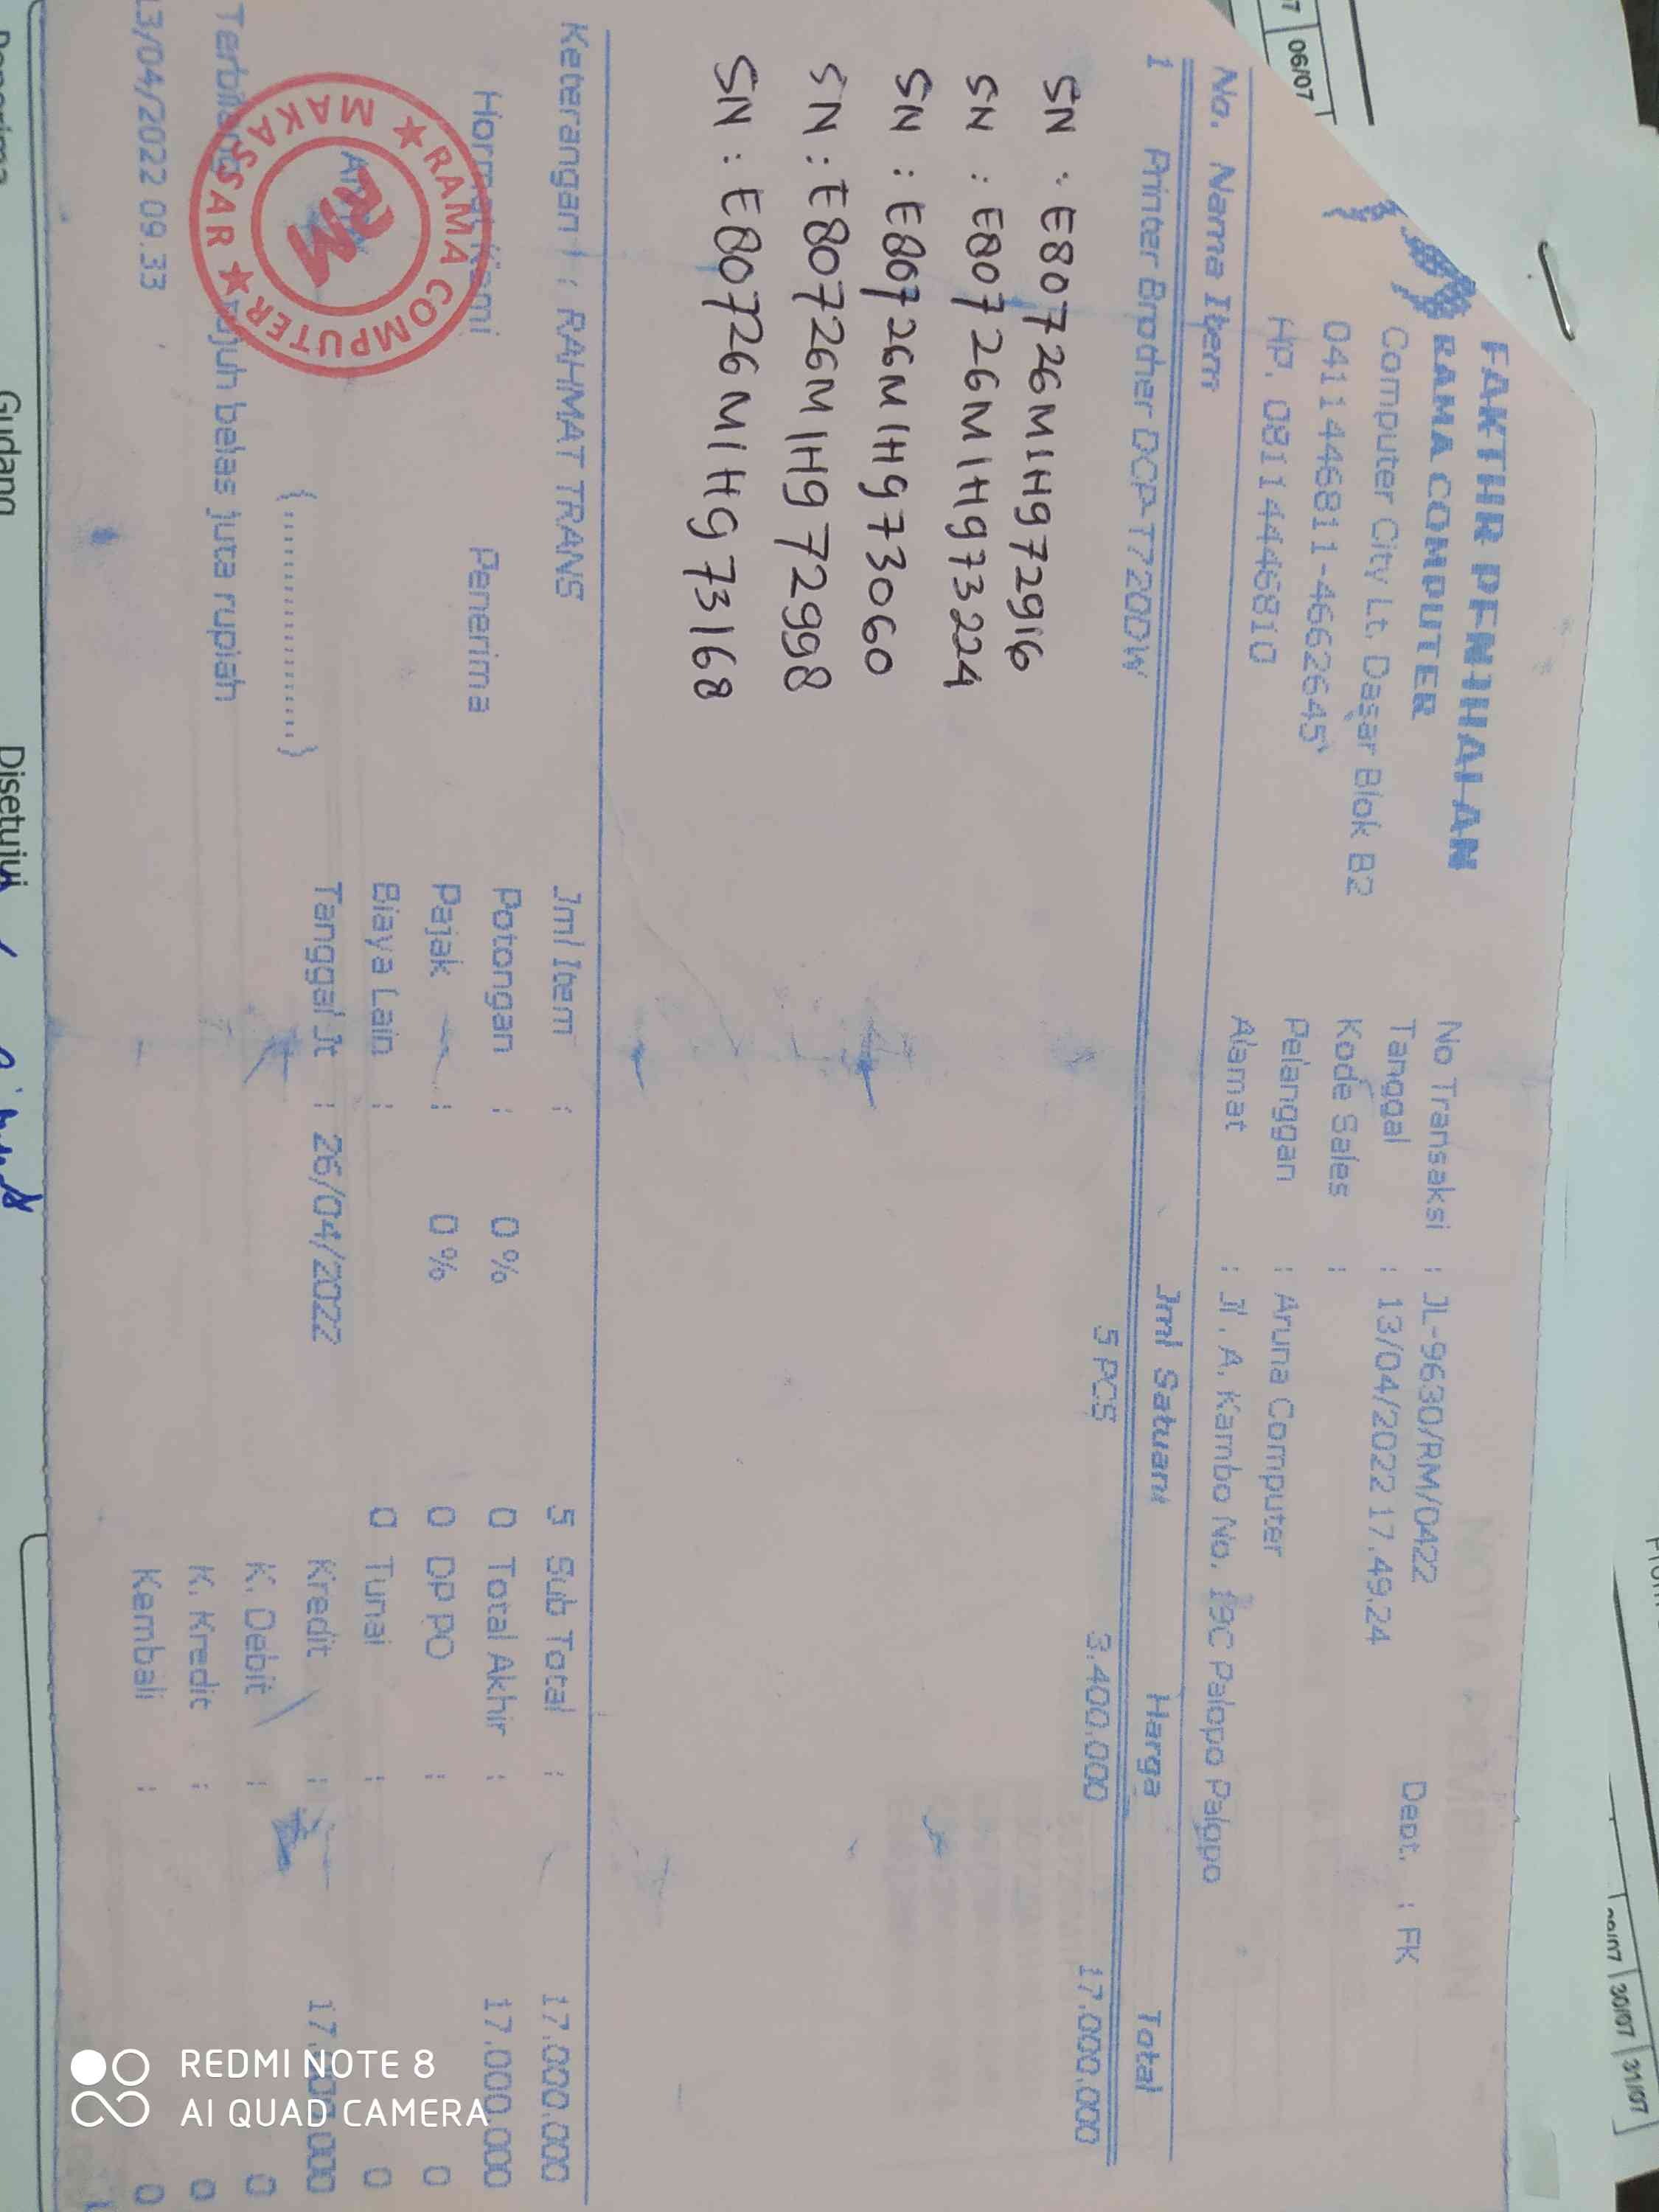 FAKTUR PENJUALAN
RAMA COMPUTER
Computer City Lt. Dasar Blok B2
0411 446811-4662645
Hp. 08114446810
No Transaksi : JL-9630/RM/0422
Tanggal : 13/04/2022 17.49.24
Dept. : FK
Kode Sales :
Pelanggan : Aruna Computer
Alamat : Jl. A. Kambo No. 19C Palopo Palopo
No. Nama Item Jml Satuan Harga Total
1 Printer Brother DCP-T720DW 5 PCS 3.400.000 17.000.000
SN : E80726M1H972916
SN : E80726M1H973224
SN : E80726M1H973060
SN : E80726M1H972998
SN : E80726M1H973168
Keterangan : RAHMAT TRANS
Jml Item : 5 Sub Total : 17.000.000
Hormat Kami Penerima
Potongan : 0 % 0 Total Akhir : 17.000.000
Pajak : 0 % 0 DP PO : 0
Biaya Lain : 0 Tunai : 0
Tanggal Jt : 26/04/2022 Kredit : 17.000.000
(................)
K. Debit : 0
K. Kredit : 0
Kembali : 0
Terbilang : tujuh belas juta rupiah
13/04/2022 09.33
RAMA COMPUTER
MAKASSAR
Gudang
Disetujui
06/07
30/07 31/07
REDMI NOTE 8
AI QUAD CAMERA